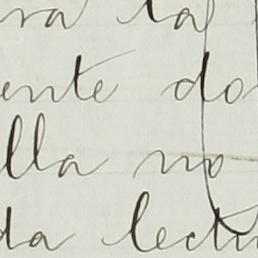 ra la
ente do
lla no
da lectu